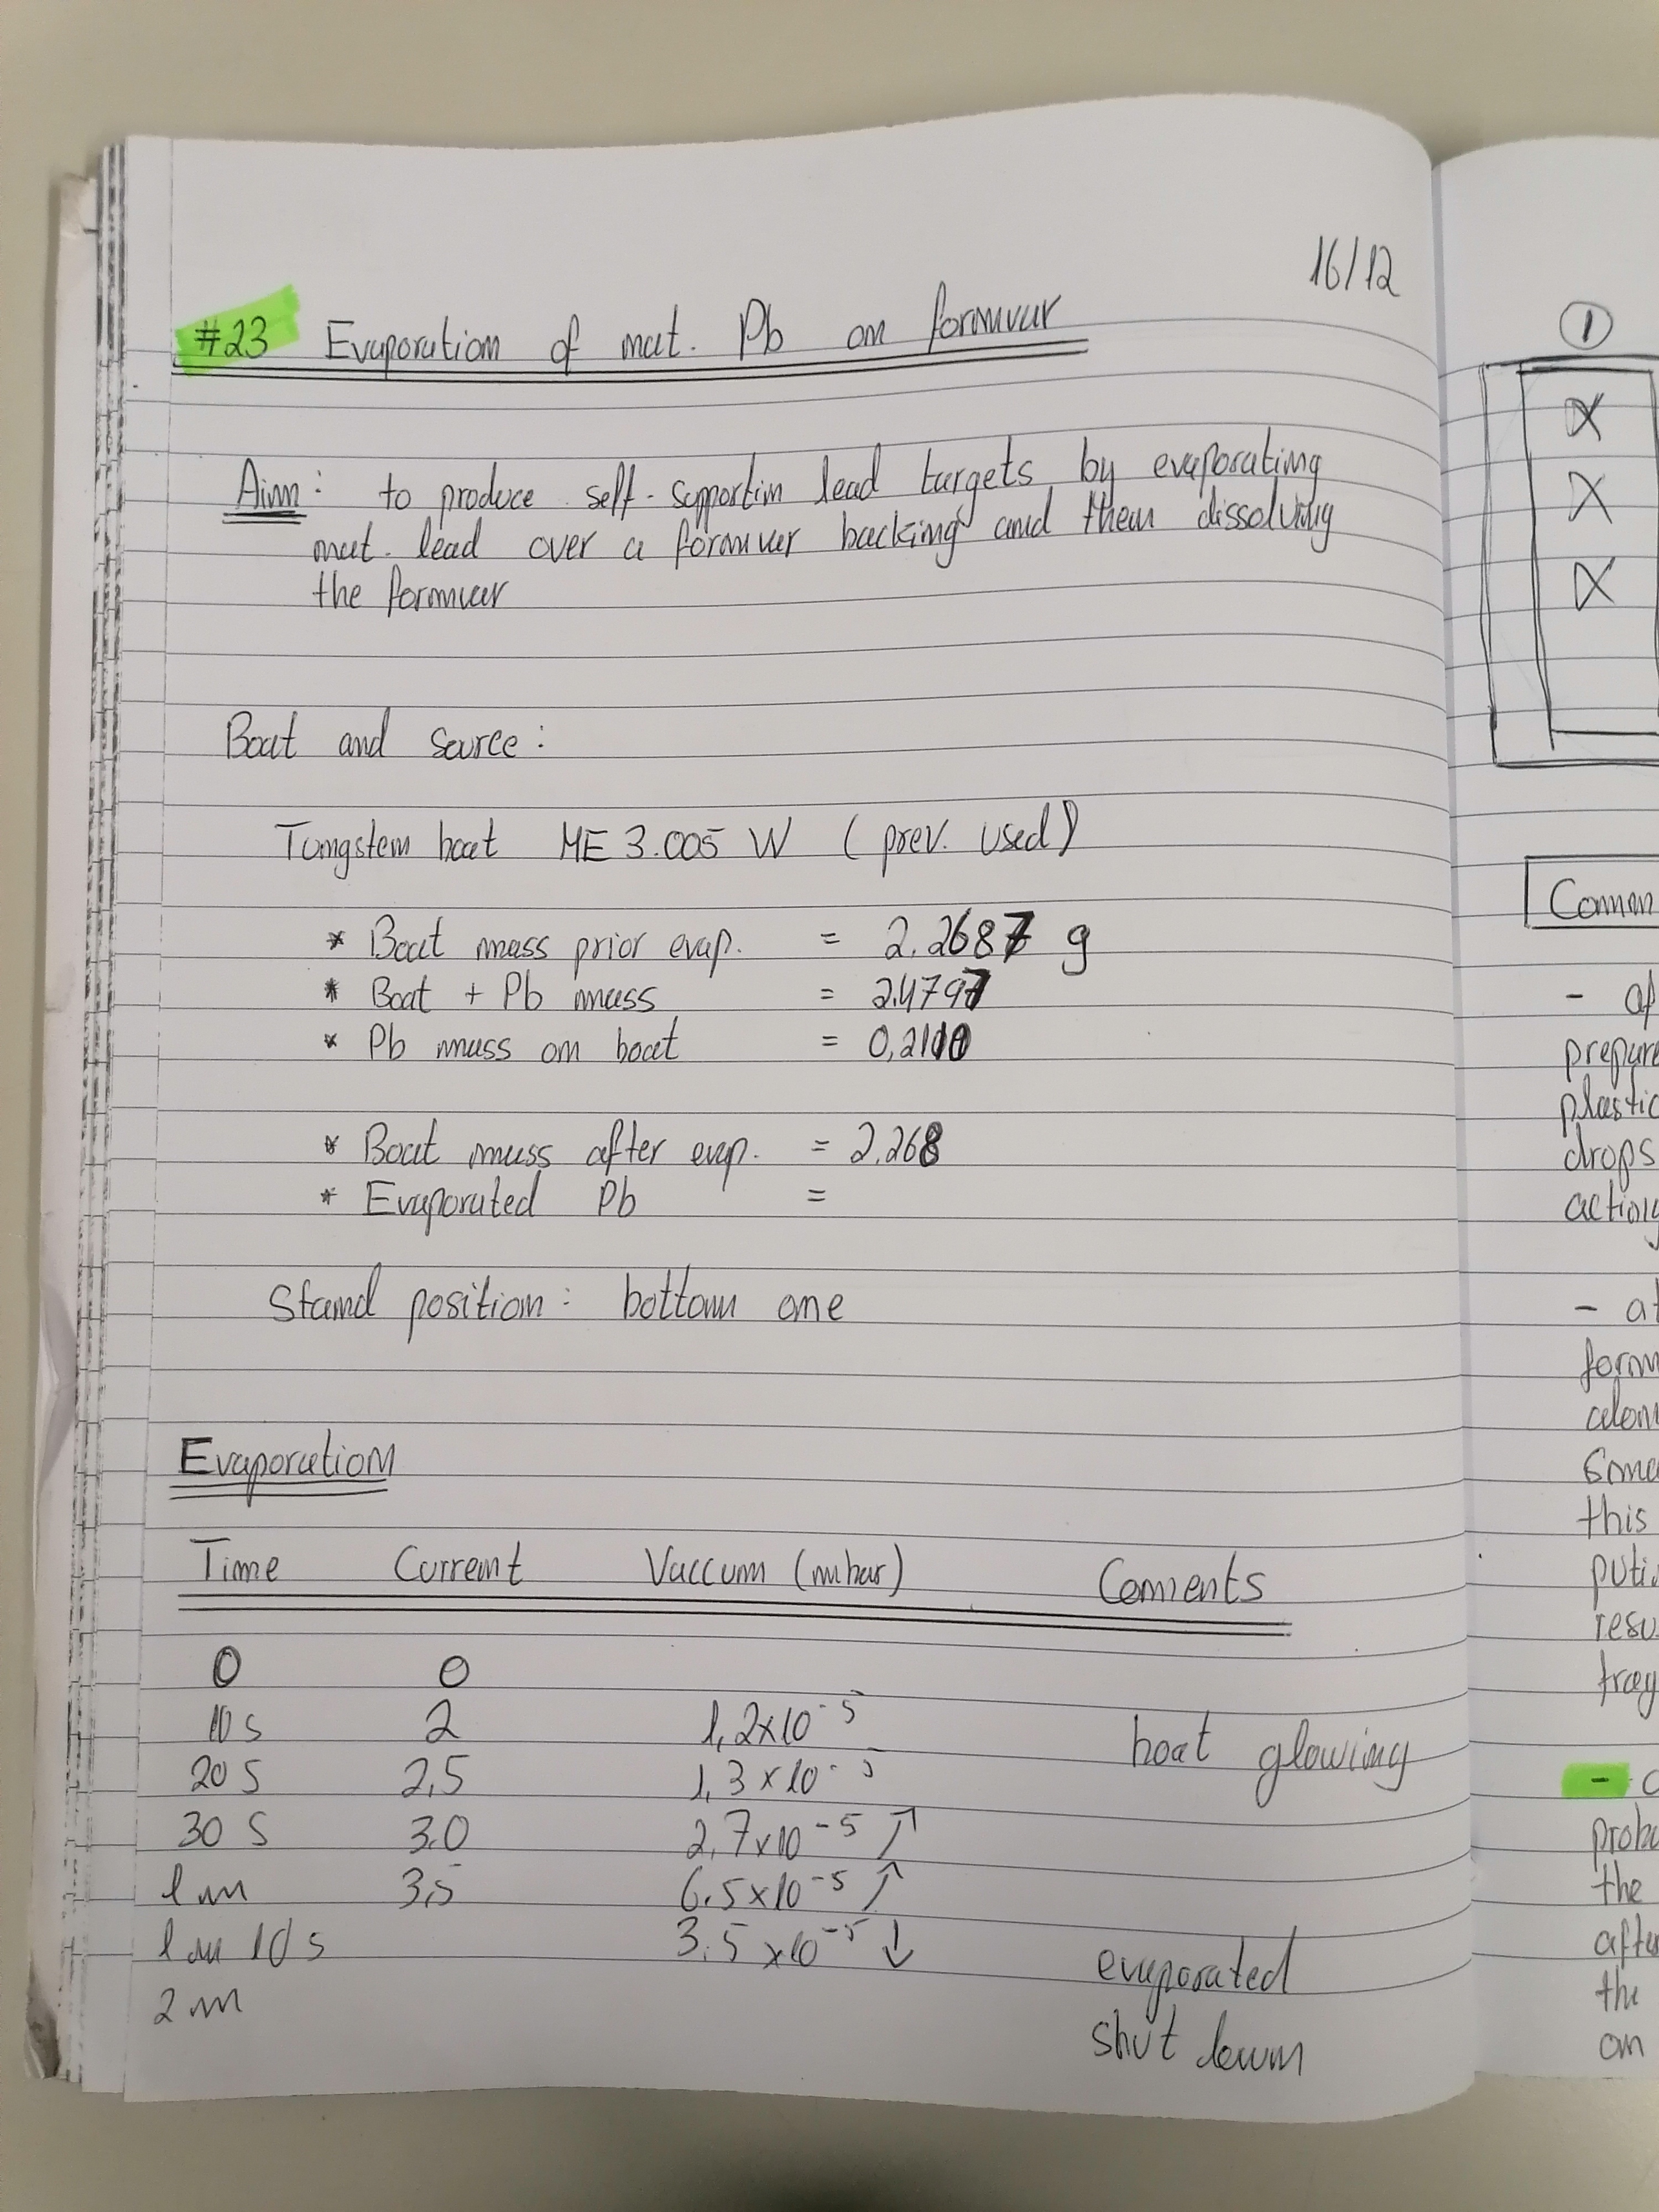 16/12
#23 Evaporation of nat. Pb on formvar
Aim: to produce self-supportin lead targets by evaporating
nat. lead over a formvar backing and then dissolving
the formvar
Boat and source:
Tungsten boat ME 3.005 W (prev. used)
* Boat mass prior evap. = 2.2687 g
* Boat + Pb mass = 2.4797
* Pb mass on boat = 0,2110
* Boat mass after evap. = 2.268
* Evaporated Pb =
Stand position: bottom one
Evaporation
Time Current Vaccum (mbar) Coments
0 0
10 s 2 1,2x10⁻⁵ boat glowing
20 s 2,5 1,3x10⁻⁵
30 s 3.0 2,7x10⁻⁵ ↗
1 m 3,5 6.5x10⁻⁵ ↗
1 m 10 s 3.5x10⁻⁵ ↓ evaporated
2 m shut down
1
X
X
X
Commen
- af
prepare
plastic
drops
- at
form
some
this
resu
the
after
the
on